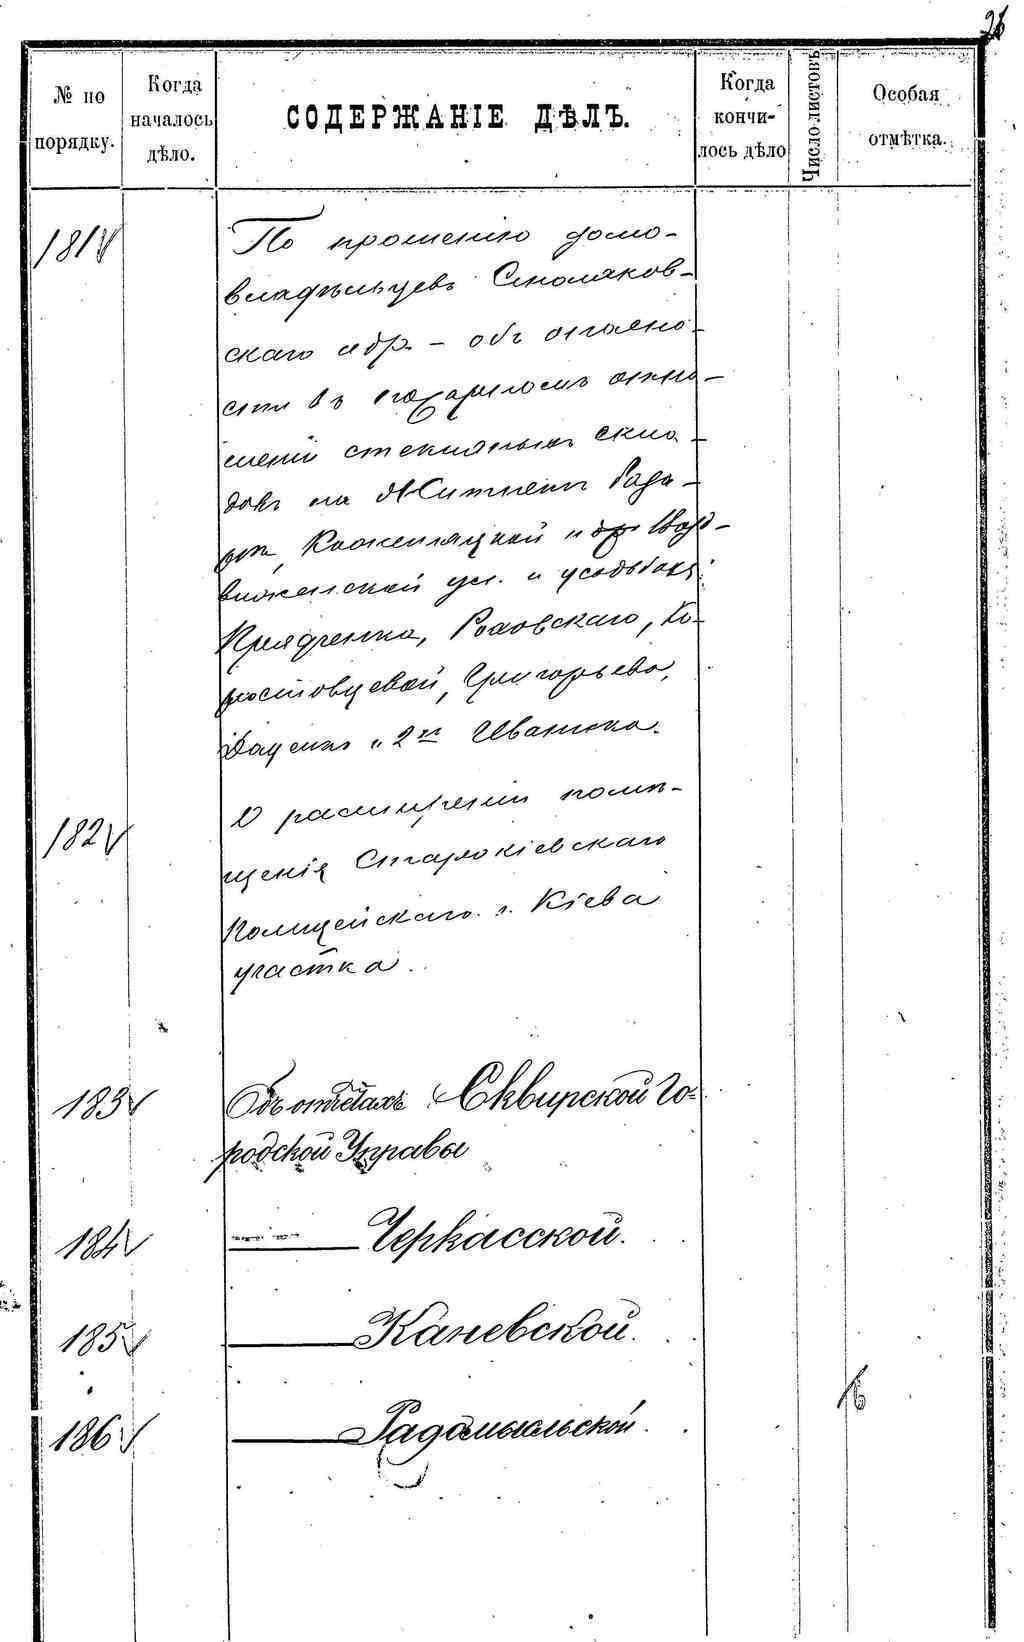 № по порядку.
Когда началось дѣло.
СОДЕРЖАНІЕ ДѢЛЪ.
Когда кончилось дѣло
Число листовъ
Особая отмѣтка.
181
По прошенію домо-
владѣльцевъ Смоляков-
скаго и др. – объ опасно-
сти въ пожарномъ отно-
шеніи стекляныхъ скла-
довъ на Житнемъ База-
рѣ, Кожемяцкой и Воздви-
женской ул. и усадьбахъ
Прядченка, Роховскаго, Ко-
ростовцевой, Григорьева,
Даценко и 2хъ Иванюка.
182
О расширеніи помѣ-
щенія Старокіевскаго
Полицейскаго г. Кіева
участка.
183
Объ отчетахъ Сквирской Го-
родской Управы
184
Черкасской.
185
Каневской.
186
Радомысльской.